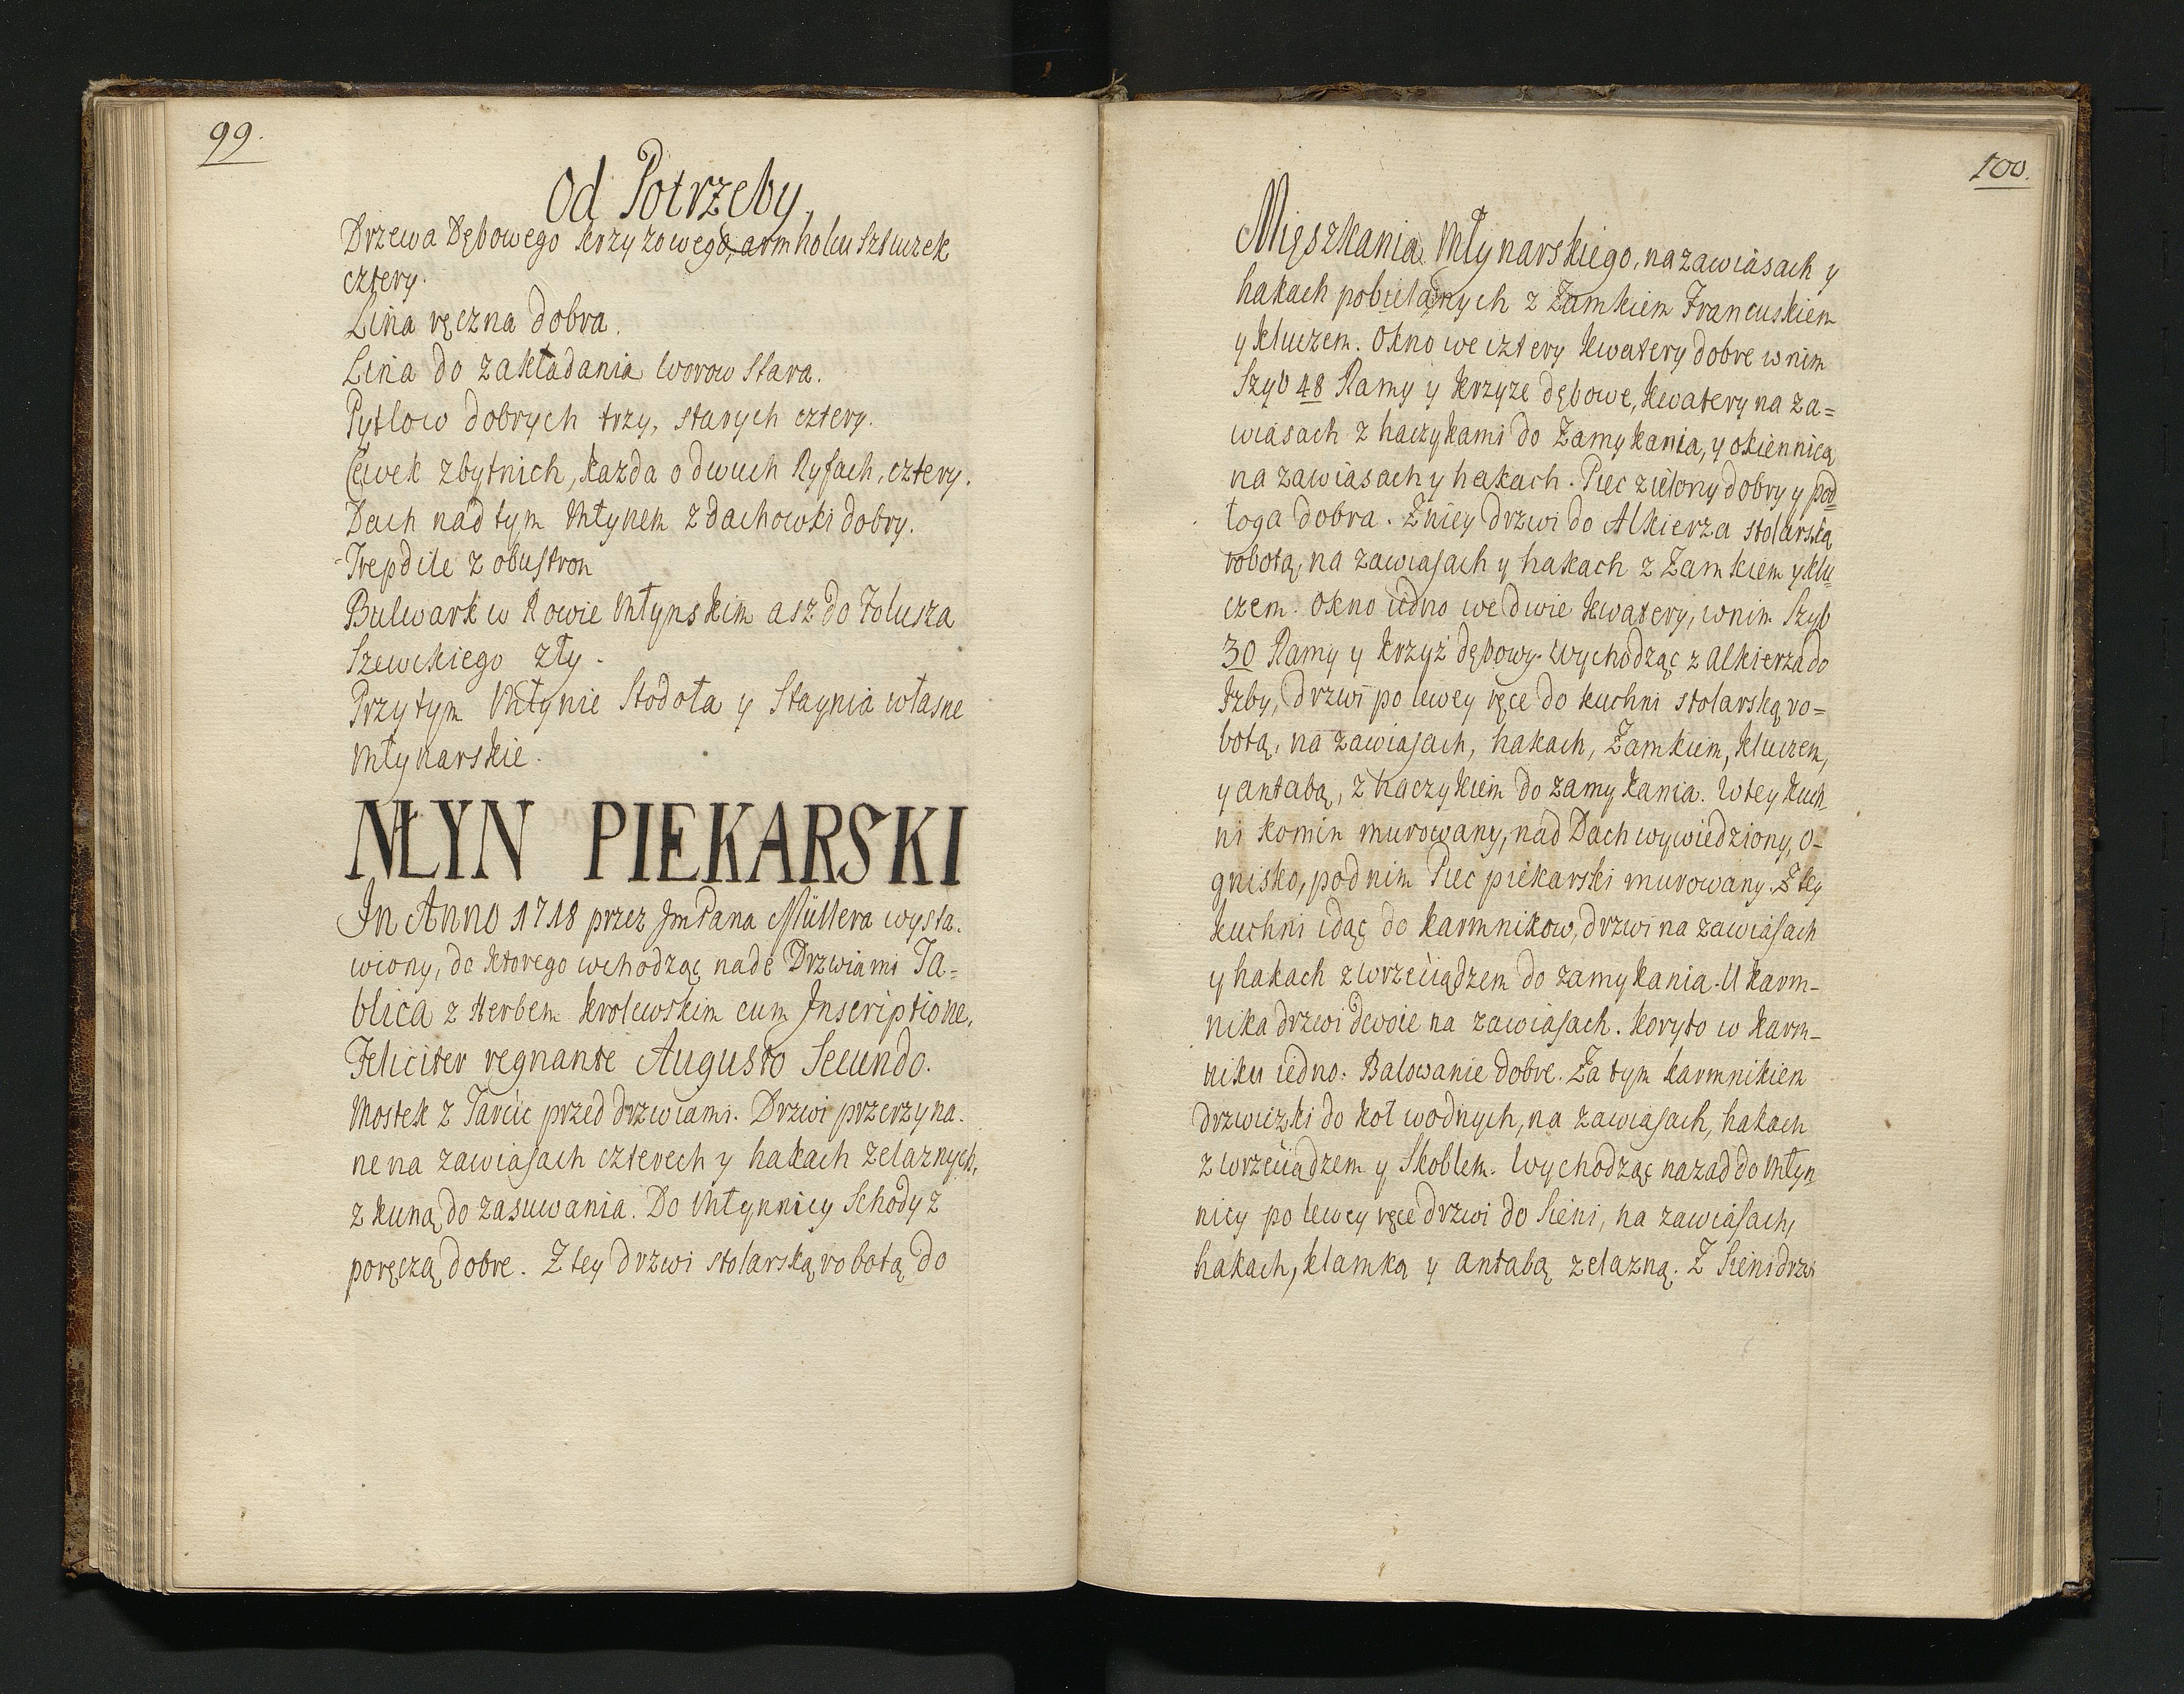 99.
Od Potrzeby.
Drzewa Dębowego krzyzowego, armholcu Sztuczek
cztery.
Lina ręczna dobra.
Lina do zakładania Worow Stara.
Pytlow dobrych trzy, starych cztery.
Cewek zbytnich, kazda o dwuch Ryfach, cztery.
Dach nad tym Młynem z dachowki dobry.
Trepdile z obustron
Bulwark w Rowie Młynskim asz do Folusza
Szewckiego zły.
Przy tym Młynie Stodoła y Staynia własne
Młynarskie.
MŁYN PIEKARSKI
In Anno 1718 przez Jm Pana Müllera wysta-
wiony, do ktorego wchodząc nade Drzwiami Ta=
blica z Herbem krolewskim cum Inscriptione,
Feliciter regnante Augusto Secundo.
Mostek z Tarcic przed drzwiami. Drzwi przerzyna-
ne na zawiasach czterech y hakach zelaznych,
z kuną do zasuwania. Do Młynnicy Schody z
poręczą dobre. Z tey drzwi stolarską robotą do
100.
Mięszkania Młynarskiego, na zawiasach y
hakach pobielanych z Zamkiem Francuskiem
y kluczem. Okno we cztery kwatery dobre w nim
Szyb 48 Ramy y krzyze dębowe, kwatery na za=
wiasach z haczykami do Zamykania, y okiennicą
na zawiasach y hakach. Piec zielony dobry y pod=
łoga dobra. Z niey drzwi do Alkierza stolarską
robotą, na zawiasach y hakach z Zamkiem y klu=
czem. Okno iedno we dwie kwatery, w nim Szyb
30 Ramy y krzyż dębowy. Wychodząc z Alkierza do
Izby, drzwi po lewey ręce do kuchni stolarską ro=
botą, na zawiasach, hakach, Zamkiem, kluczem,
y antabą, z haczykiem do zamykania. W tey kuch
ni komin murowany, nad Dach wywiedziony, o-
gnisko, pod nim Piec piekarski murowany. Z tey
kuchni idąc do karmnikow, drzwi na zawiasach
y hakach z wrzeciądzem do zamykania. U karm-
nika drzwi dwoie na zawiasach. koryto w karm-
niku iedno. Balowanie dobre. Za tym karmnikiem
drzwiczki do koł wodnych, na zawiasach, hakach
z wrzeciądzem y Skoblem. Wychodząc nazad do Młyn
nicy po lewey ręce drzwi do Sieni, na zawiasach,
hakach, klamką y antabą zelazną. Z Sieni drzwi